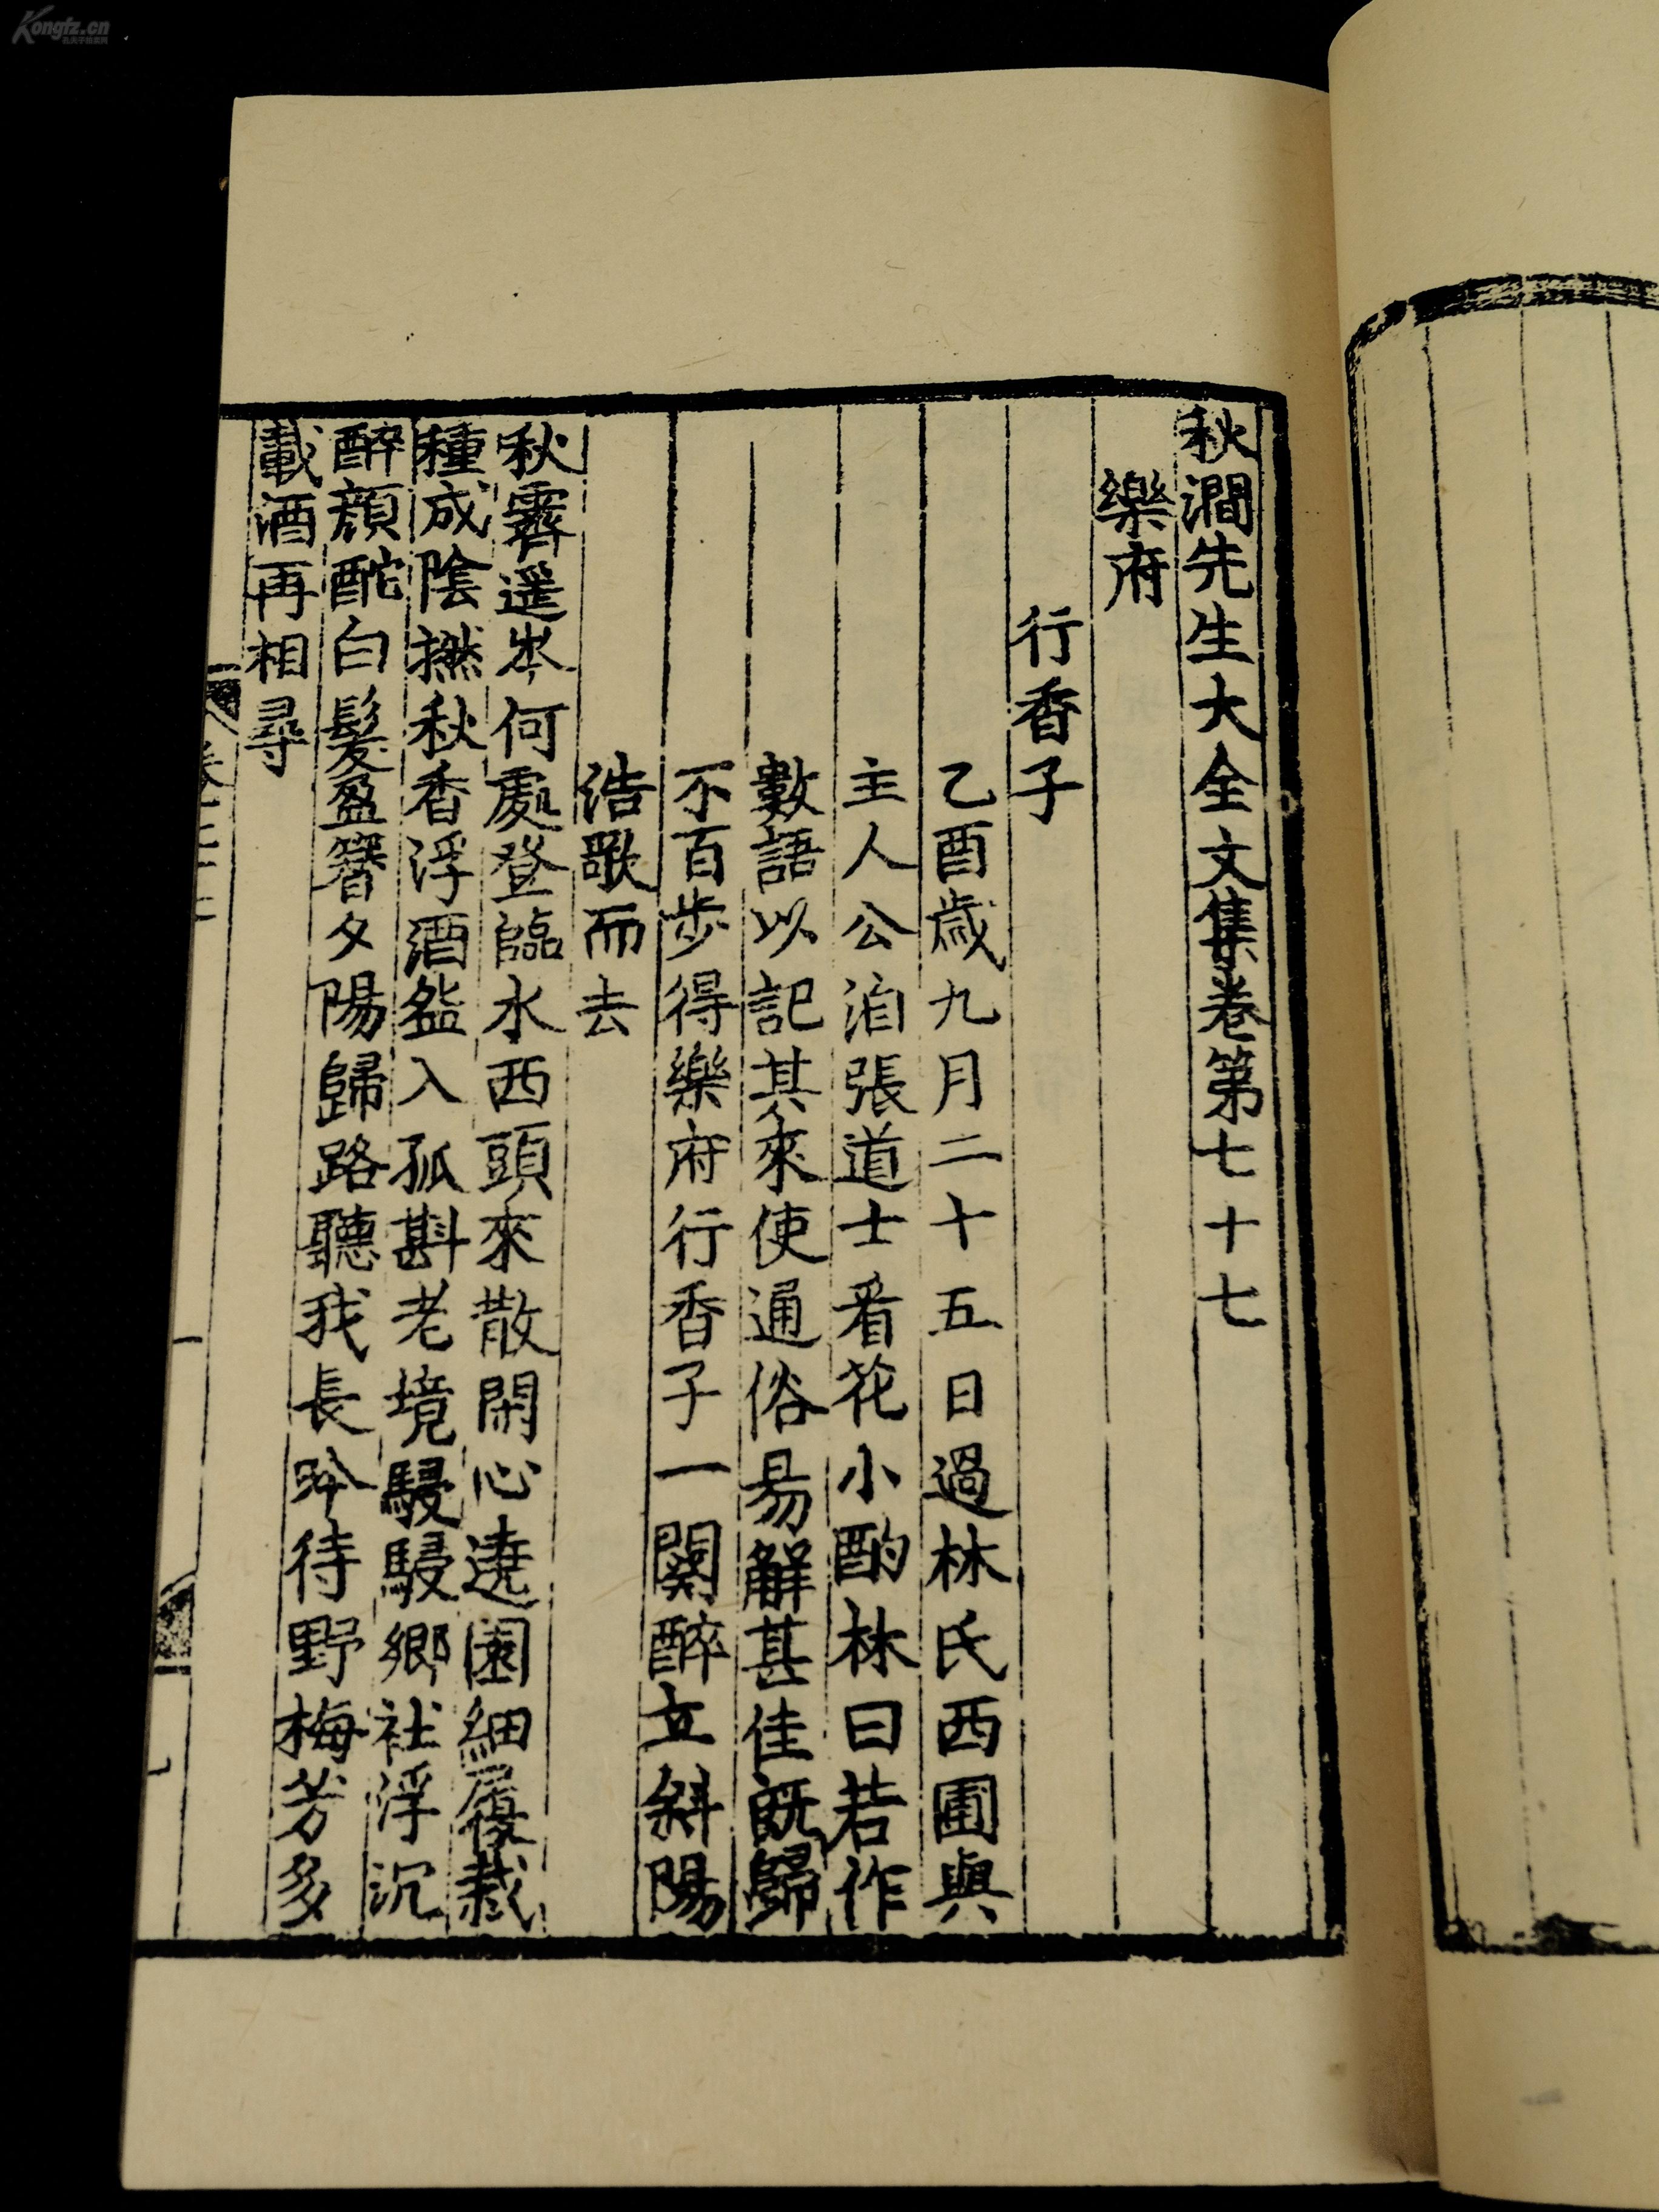 Kongfz.cn
秋澗先生大全文集卷第七十七
樂府
行香子
乙酉歲九月二十五日過林氏西圃與
主人公洎張道士看花小酌林曰若作
數語以記其來使通俗易解甚佳旣歸
不百步得樂府行香子一闋醉立斜陽
浩歌而去
秋霽遥岑何處登臨水西頭來散閑心遶園細履栽
種成陰撚秋香浮酒盞入孤斟老境駸駸鄉社浮沉
醉顔酡白髮盈簪夕陽歸路聽我長吟待野梅芳多
載酒再相尋